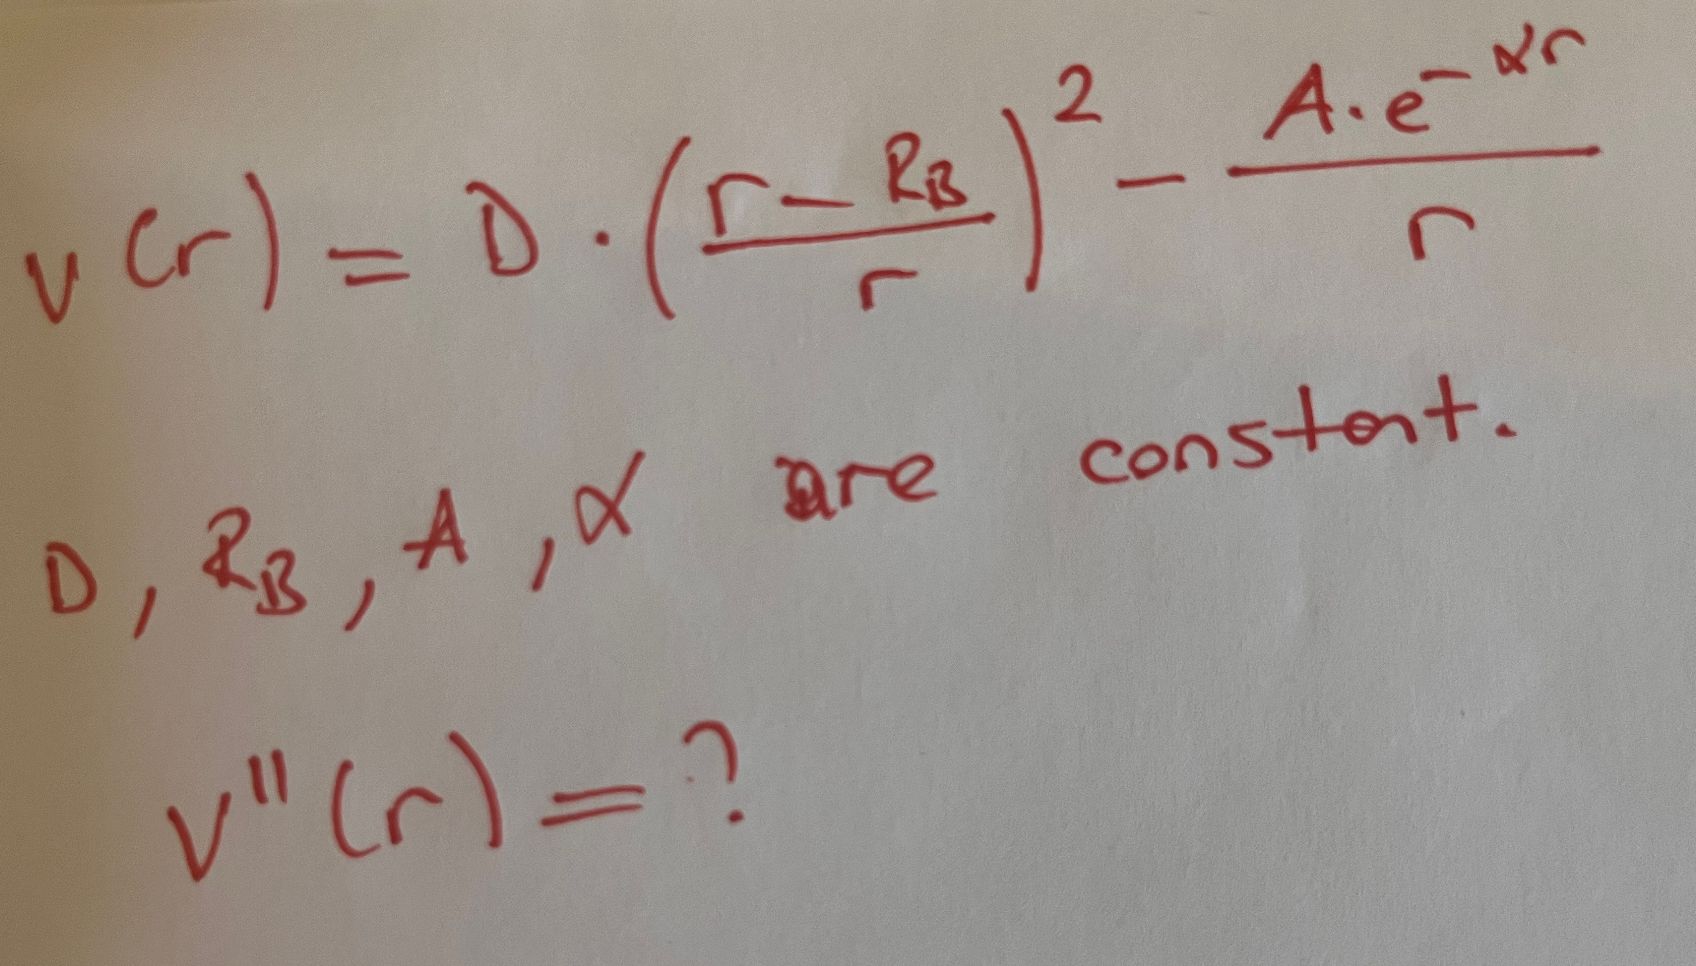 V(r) = D · ((r - R_B)/r)^2 - (A.e^(-αr))/r
D, R_B, A, α are constant.
V''(r) = ?